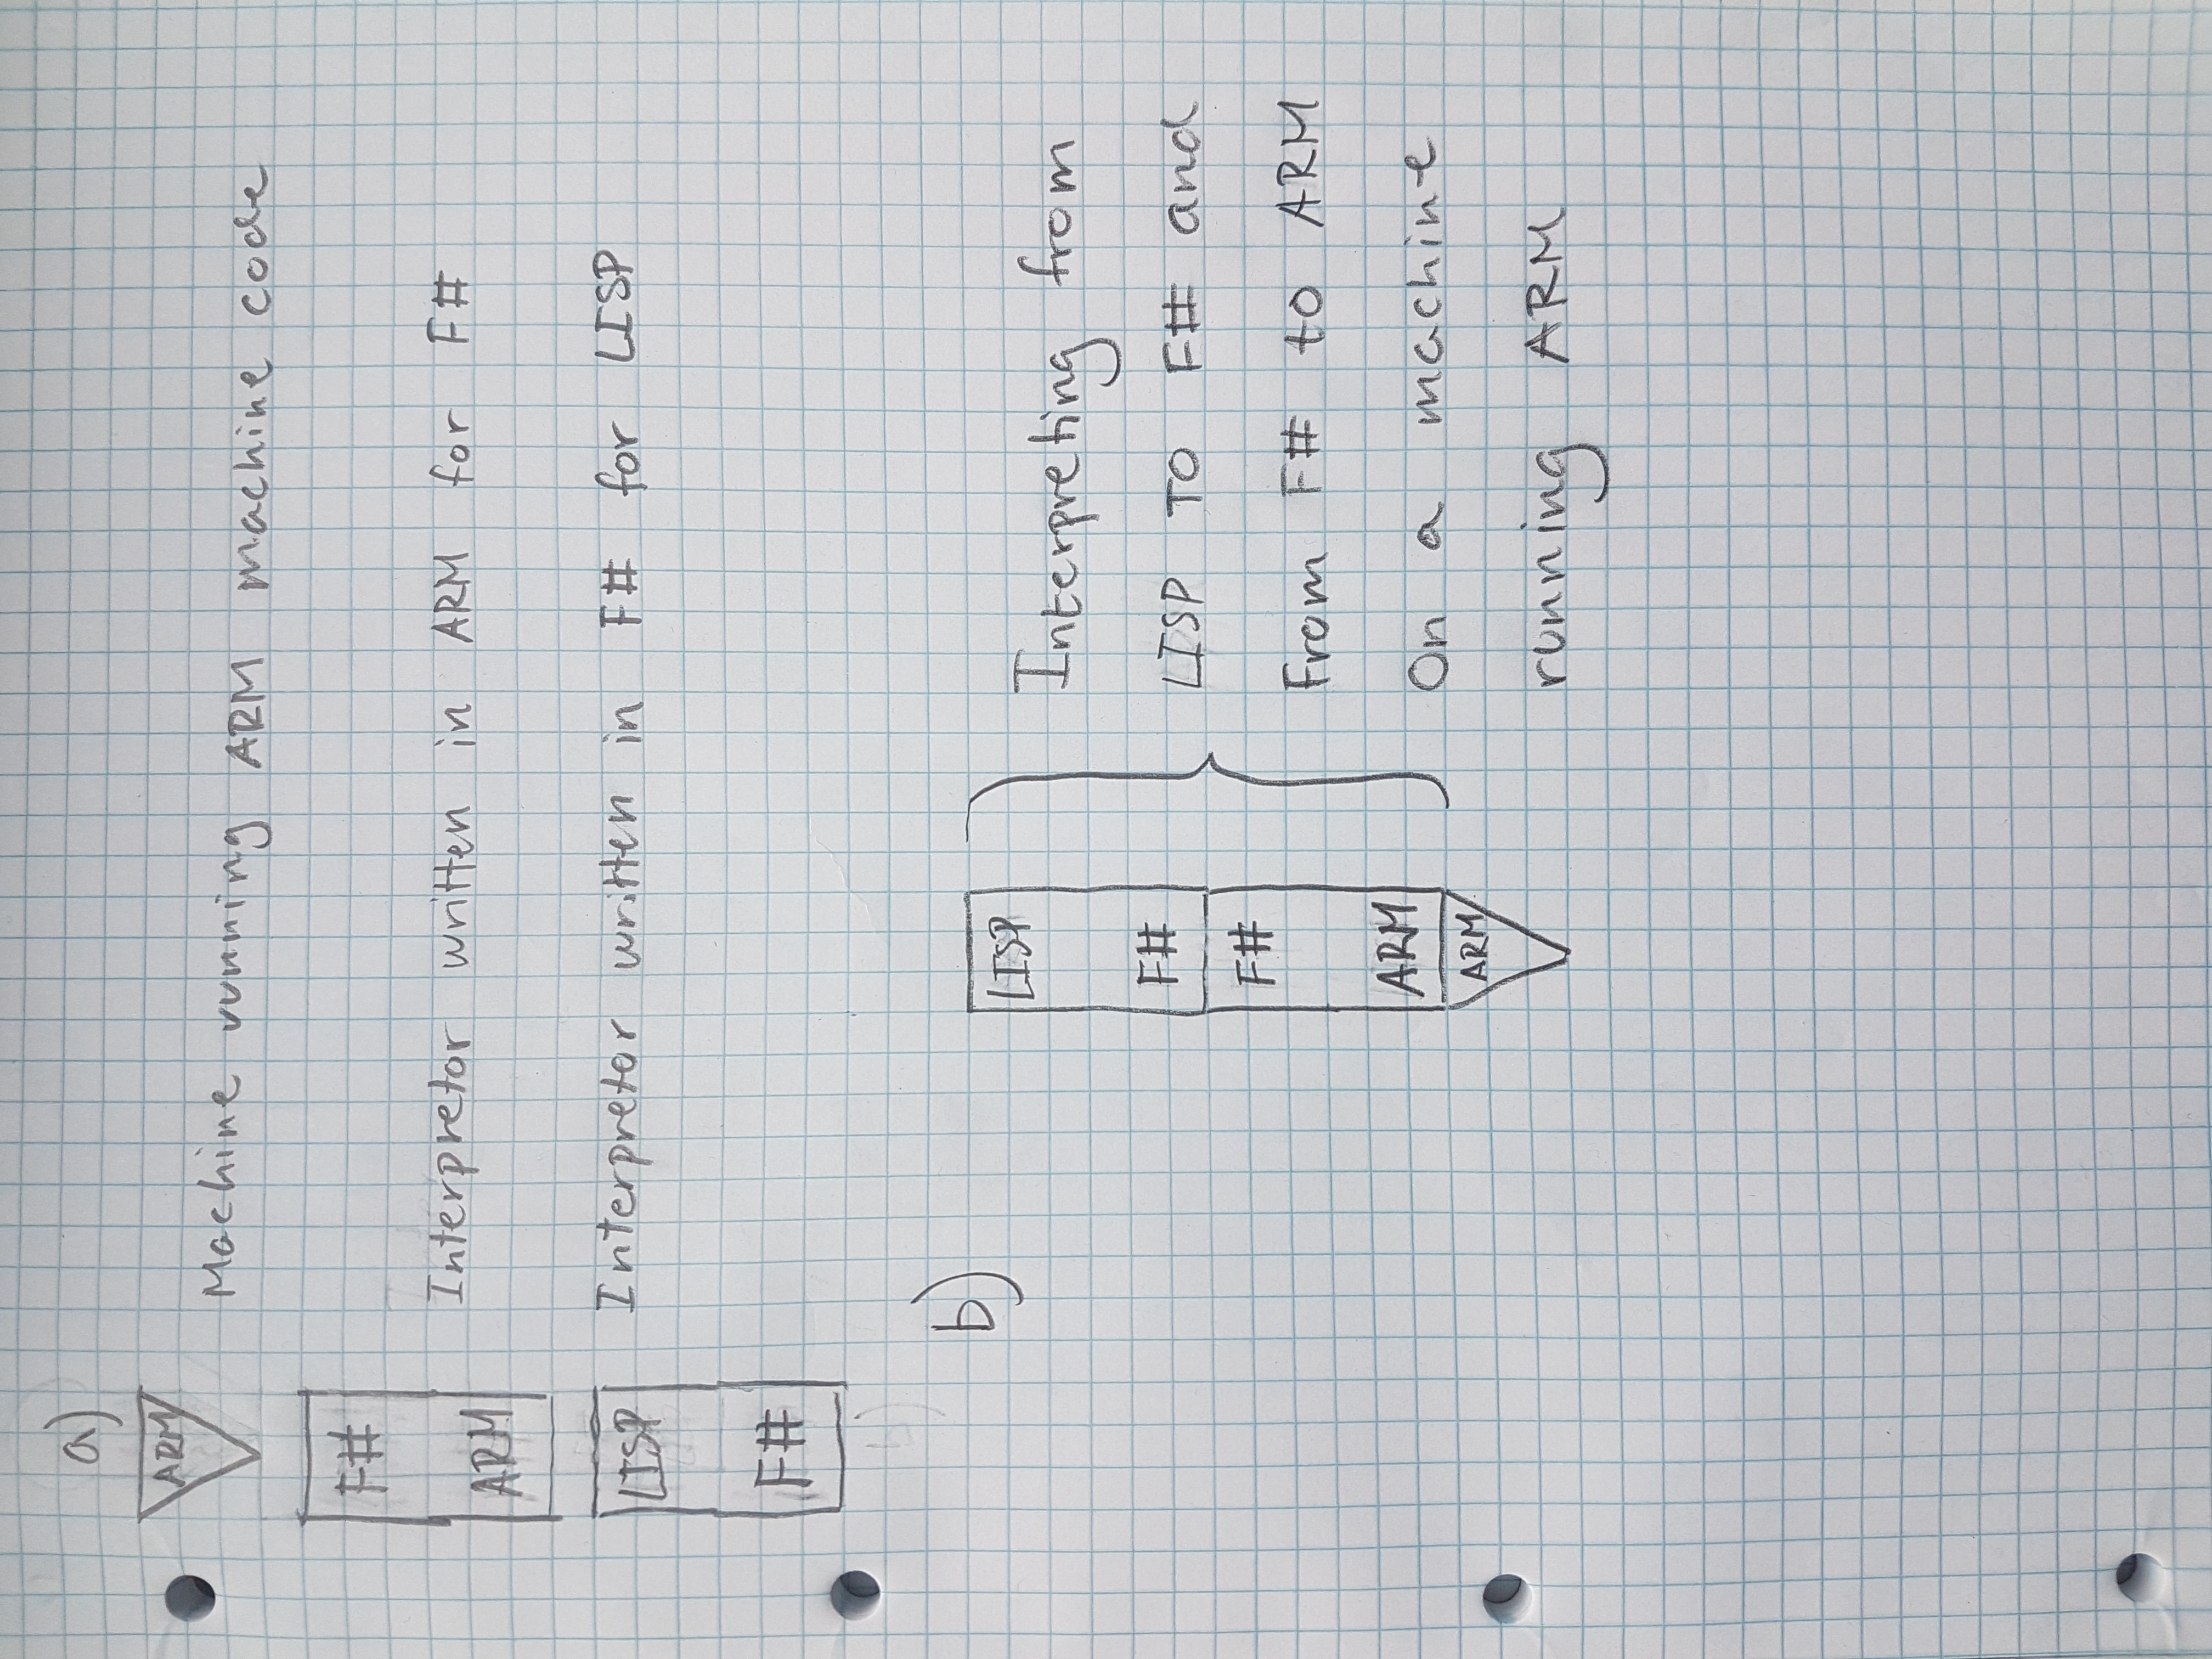 a)
ARM
Machine running ARM machine code
F#
Interpretor written in ARM for F#
ARM
LISP
Interpretor written in F# for LISP
F#
b)
b)
LISP
Interpreting from
F#
LISP TO F# and
F#
From F# to ARM
ARM
On a machine
ARM
running ARM